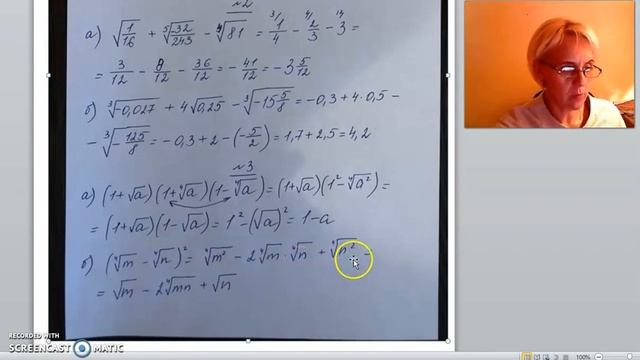 №2
а) √1/16 + ⁵√-32/243 − ⁴√81 = ³⁄1/4 − ⁴⁄2/3 − ¹²⁄3 =
= 3/12 − 8/12 − 36/12 = −41/12 = −3 5/12
б) ³√-0,027 + 4√0,25 − ³√-15 5/8 = −0,3 + 4·0,5 −
− ³√-125/8 = −0,3 + 2 − (−5/2) = 1,7 + 2,5 = 4,2
№3
а) (1+√a)(1+⁴√a)(1−⁴√a) = (1+√a)(1² − ⁴√a²) =
= (1+√a)(1−√a) = 1² − (√a)² = 1−a
б) (⁴√m − ⁴√n)² = ⁴√m² − 2⁴√m · ⁴√n + ⁴√n² =
= √m − 2⁴√mn + √n
RECORDED WITH
SCREENCAST MATIC
100%